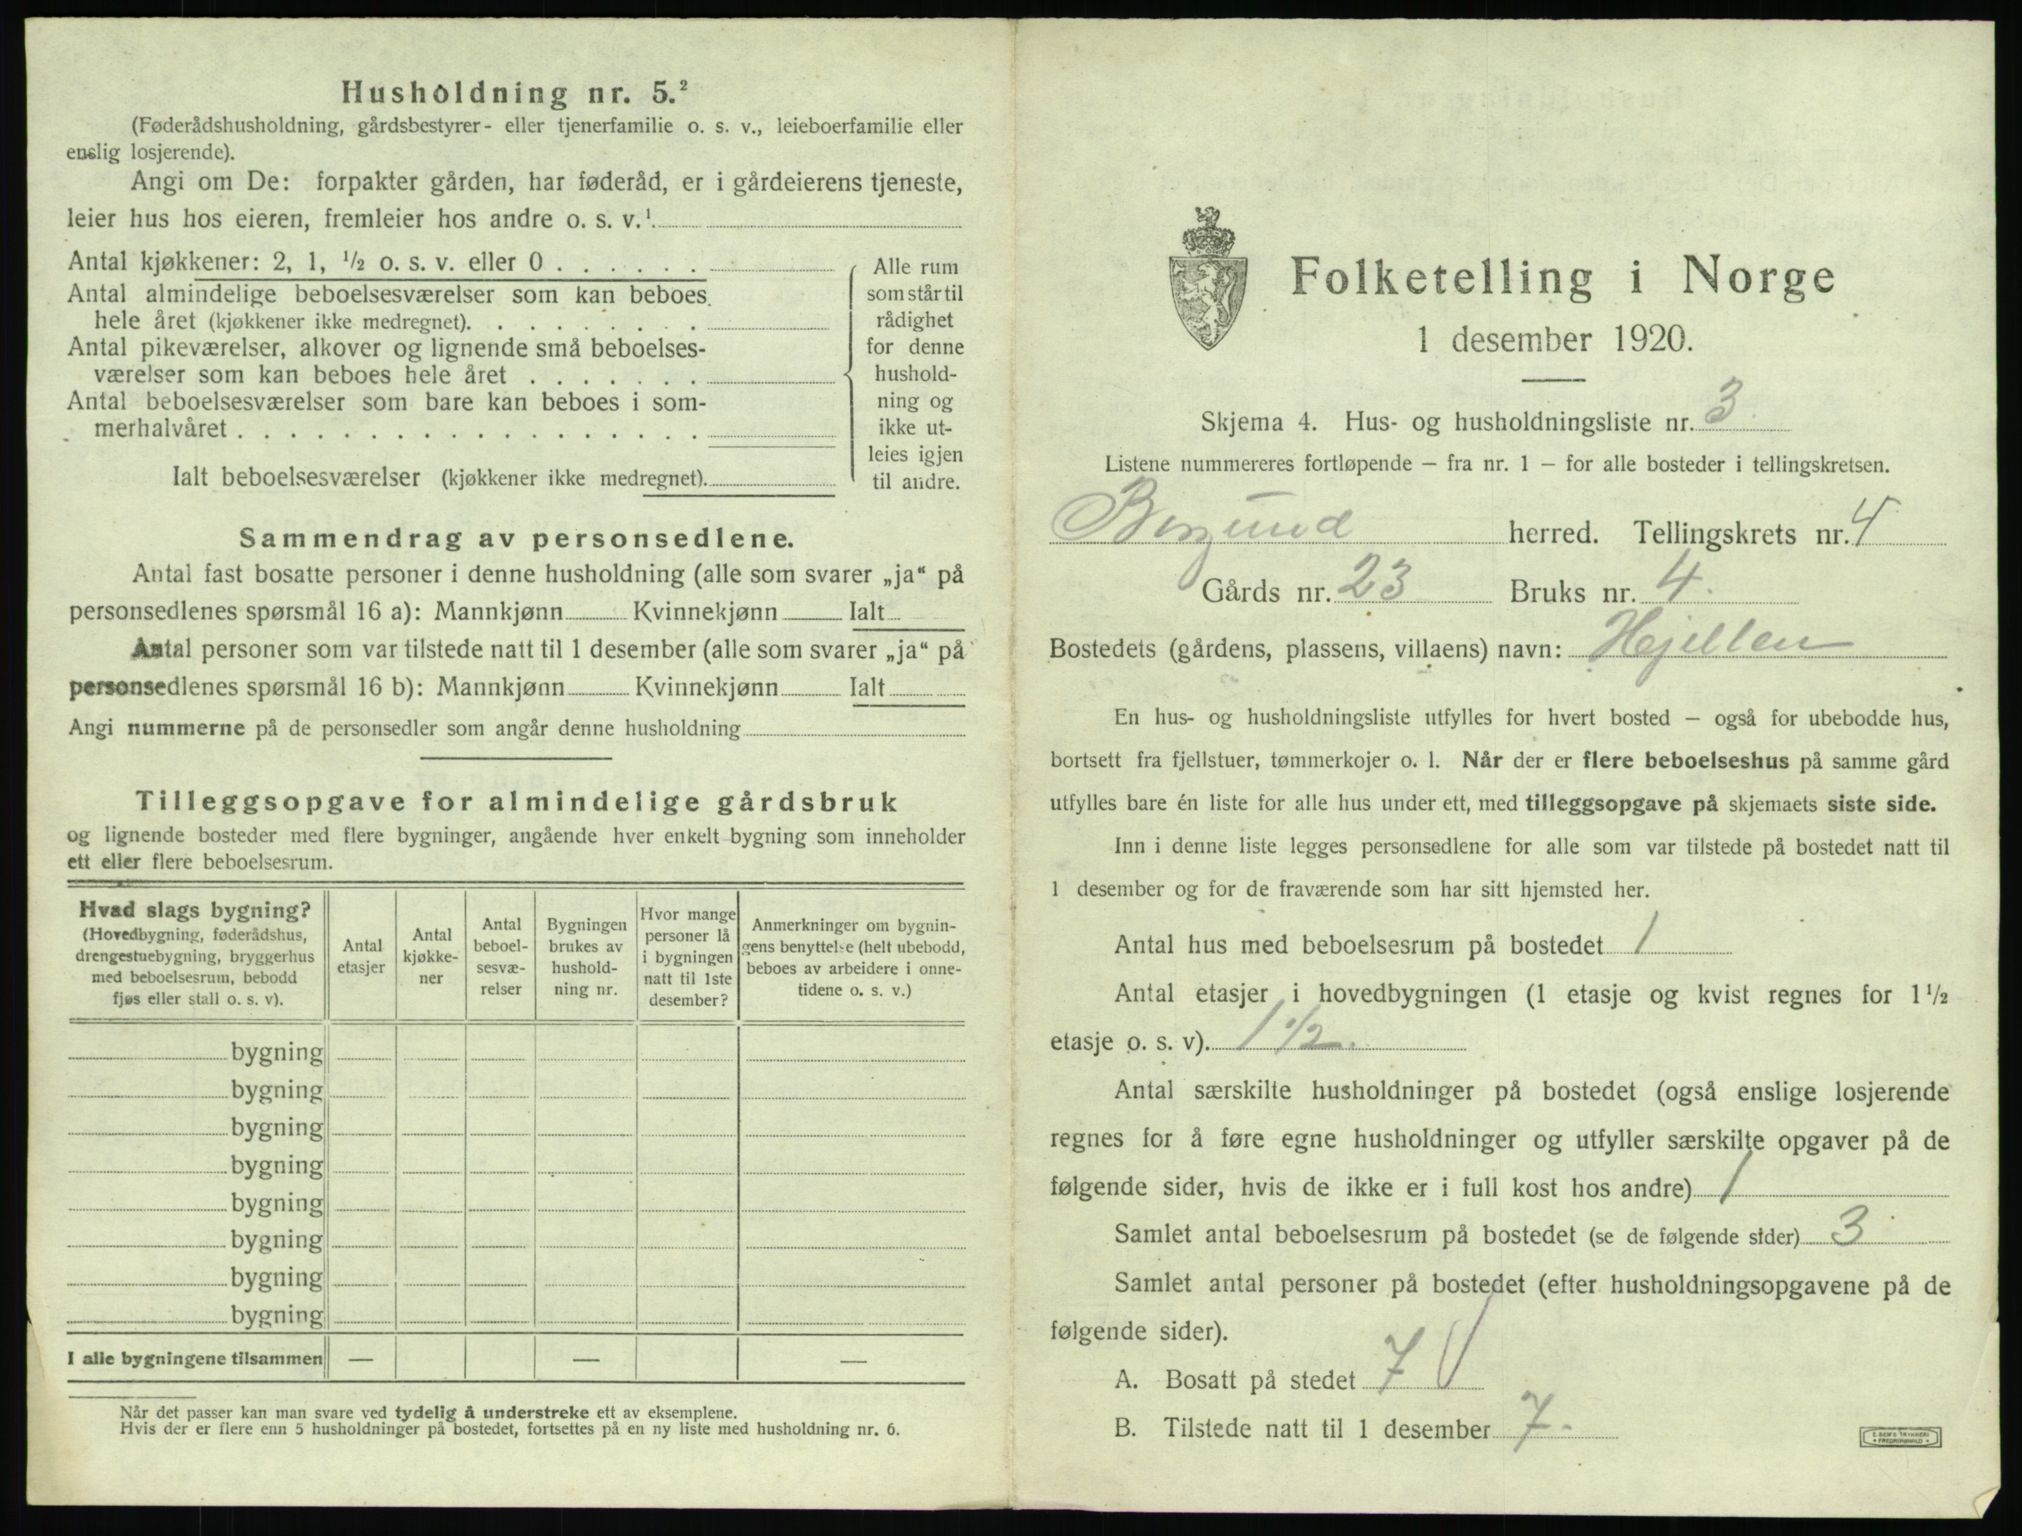 Husholdning nr. 5.²
(Føderådshusholdning, gårdsbestyrer- eller tjenerfamilie o. s. v., leieboerfamilie eller
enslig losjerende).
Angi om De: forpakter gården, har føderåd, er i gårdeierens tjeneste,
leier hus hos eieren, fremleier hos andre o. s. v.¹
Antal kjøkkener: 2, 1, ½ o. s. v. eller 0 . . . . . .
Antal almindelige beboelsesværelser som kan beboes
hele året (kjøkkener ikke medregnet). . . . . . . . .
Antal pikeværelser, alkover og lignende små beboelses-
værelser som kan beboes hele året . . . . . . .
Antal beboelsesværelser som bare kan beboes i som-
merhalvåret . . . . . . . . . . . . . . . . . .
Ialt beboelsesværelser (kjøkkener ikke medregnet).
Alle rum
som står til
rådighet
for denne
hushold-
ning og
ikke ut-
leies igjen
til andre.
Sammendrag av personsedlene.
Antal fast bosatte personer i denne husholdning (alle som svarer „ja“ på
personsedlenes spørsmål 16 a): Mannkjønn Kvinnekjønn Ialt
Antal personer som var tilstede natt til 1 desember (alle som svarer „ja“ på
personsedlenes spørsmål 16 b): Mannkjønn Kvinnekjønn Ialt
Angi nummerne på de personsedler som angår denne husholdning
Tilleggsopgave for almindelige gårdsbruk
og lignende bosteder med flere bygninger, angående hver enkelt bygning som inneholder
ett eller flere beboelsesrum.
Hvad slags bygning?
(Hovedbygning, føderådshus,
drengestuebygning, bryggerhus
med beboelsesrum, bebodd
fjøs eller stall o. s. v).
Antal
etasjer
Antal
kjøkke-
ner
Antal
beboel-
sesvæ-
relser
Bygningen
brukes av
hushold-
ning nr.
Hvor mange
personer lå
i bygningen
natt til 1ste
desember?
Anmerkninger om bygnin-
gens benyttelse (helt ubebodd,
beboes av arbeidere i onne-
tidene o. s. v.)
bygning
bygning
bygning
bygning
bygning
bygning
bygning
bygning
I alle bygningene tilsammen — — —
Når det passer kan man svare ved tydelig å understreke ett av eksemplene.
Hvis der er flere enn 5 husholdninger på bostedet, fortsettes på en ny liste med husholdning nr. 6.
Folketelling i Norge
1 desember 1920.
Skjema 4. Hus- og husholdningsliste nr. 3
Listene nummereres fortløpende – fra nr. 1 – for alle bosteder i tellingskretsen.
Borgund herred. Tellingskrets nr. 4
Gårds nr. 23 Bruks nr. 4.
Bostedets (gårdens, plassens, villaens) navn: Hjellen
En hus- og husholdningsliste utfylles for hvert bosted – også for ubebodde hus,
bortsett fra fjellstuer, tømmerkojer o. l. Når der er flere beboelseshus på samme gård
utfylles bare én liste for alle hus under ett, med tilleggsopgave på skjemaets siste side.
Inn i denne liste legges personsedlene for alle som var tilstede på bostedet natt til
1 desember og for de fraværende som har sitt hjemsted her.
Antal hus med beboelsesrum på bostedet 1
Antal etasjer i hovedbygningen (1 etasje og kvist regnes for 1½
etasje o. s. v). 1 1/2.
Antal særskilte husholdninger på bostedet (også enslige losjerende
regnes for å føre egne husholdninger og utfyller særskilte opgaver på de
følgende sider, hvis de ikke er i full kost hos andre) 1
Samlet antal beboelsesrum på bostedet (se de følgende sider) 3
Samlet antal personer på bostedet (efter husholdningsopgavene på de
følgende sider).
A. Bosatt på stedet 7
B. Tilstede natt til 1 desember 7.